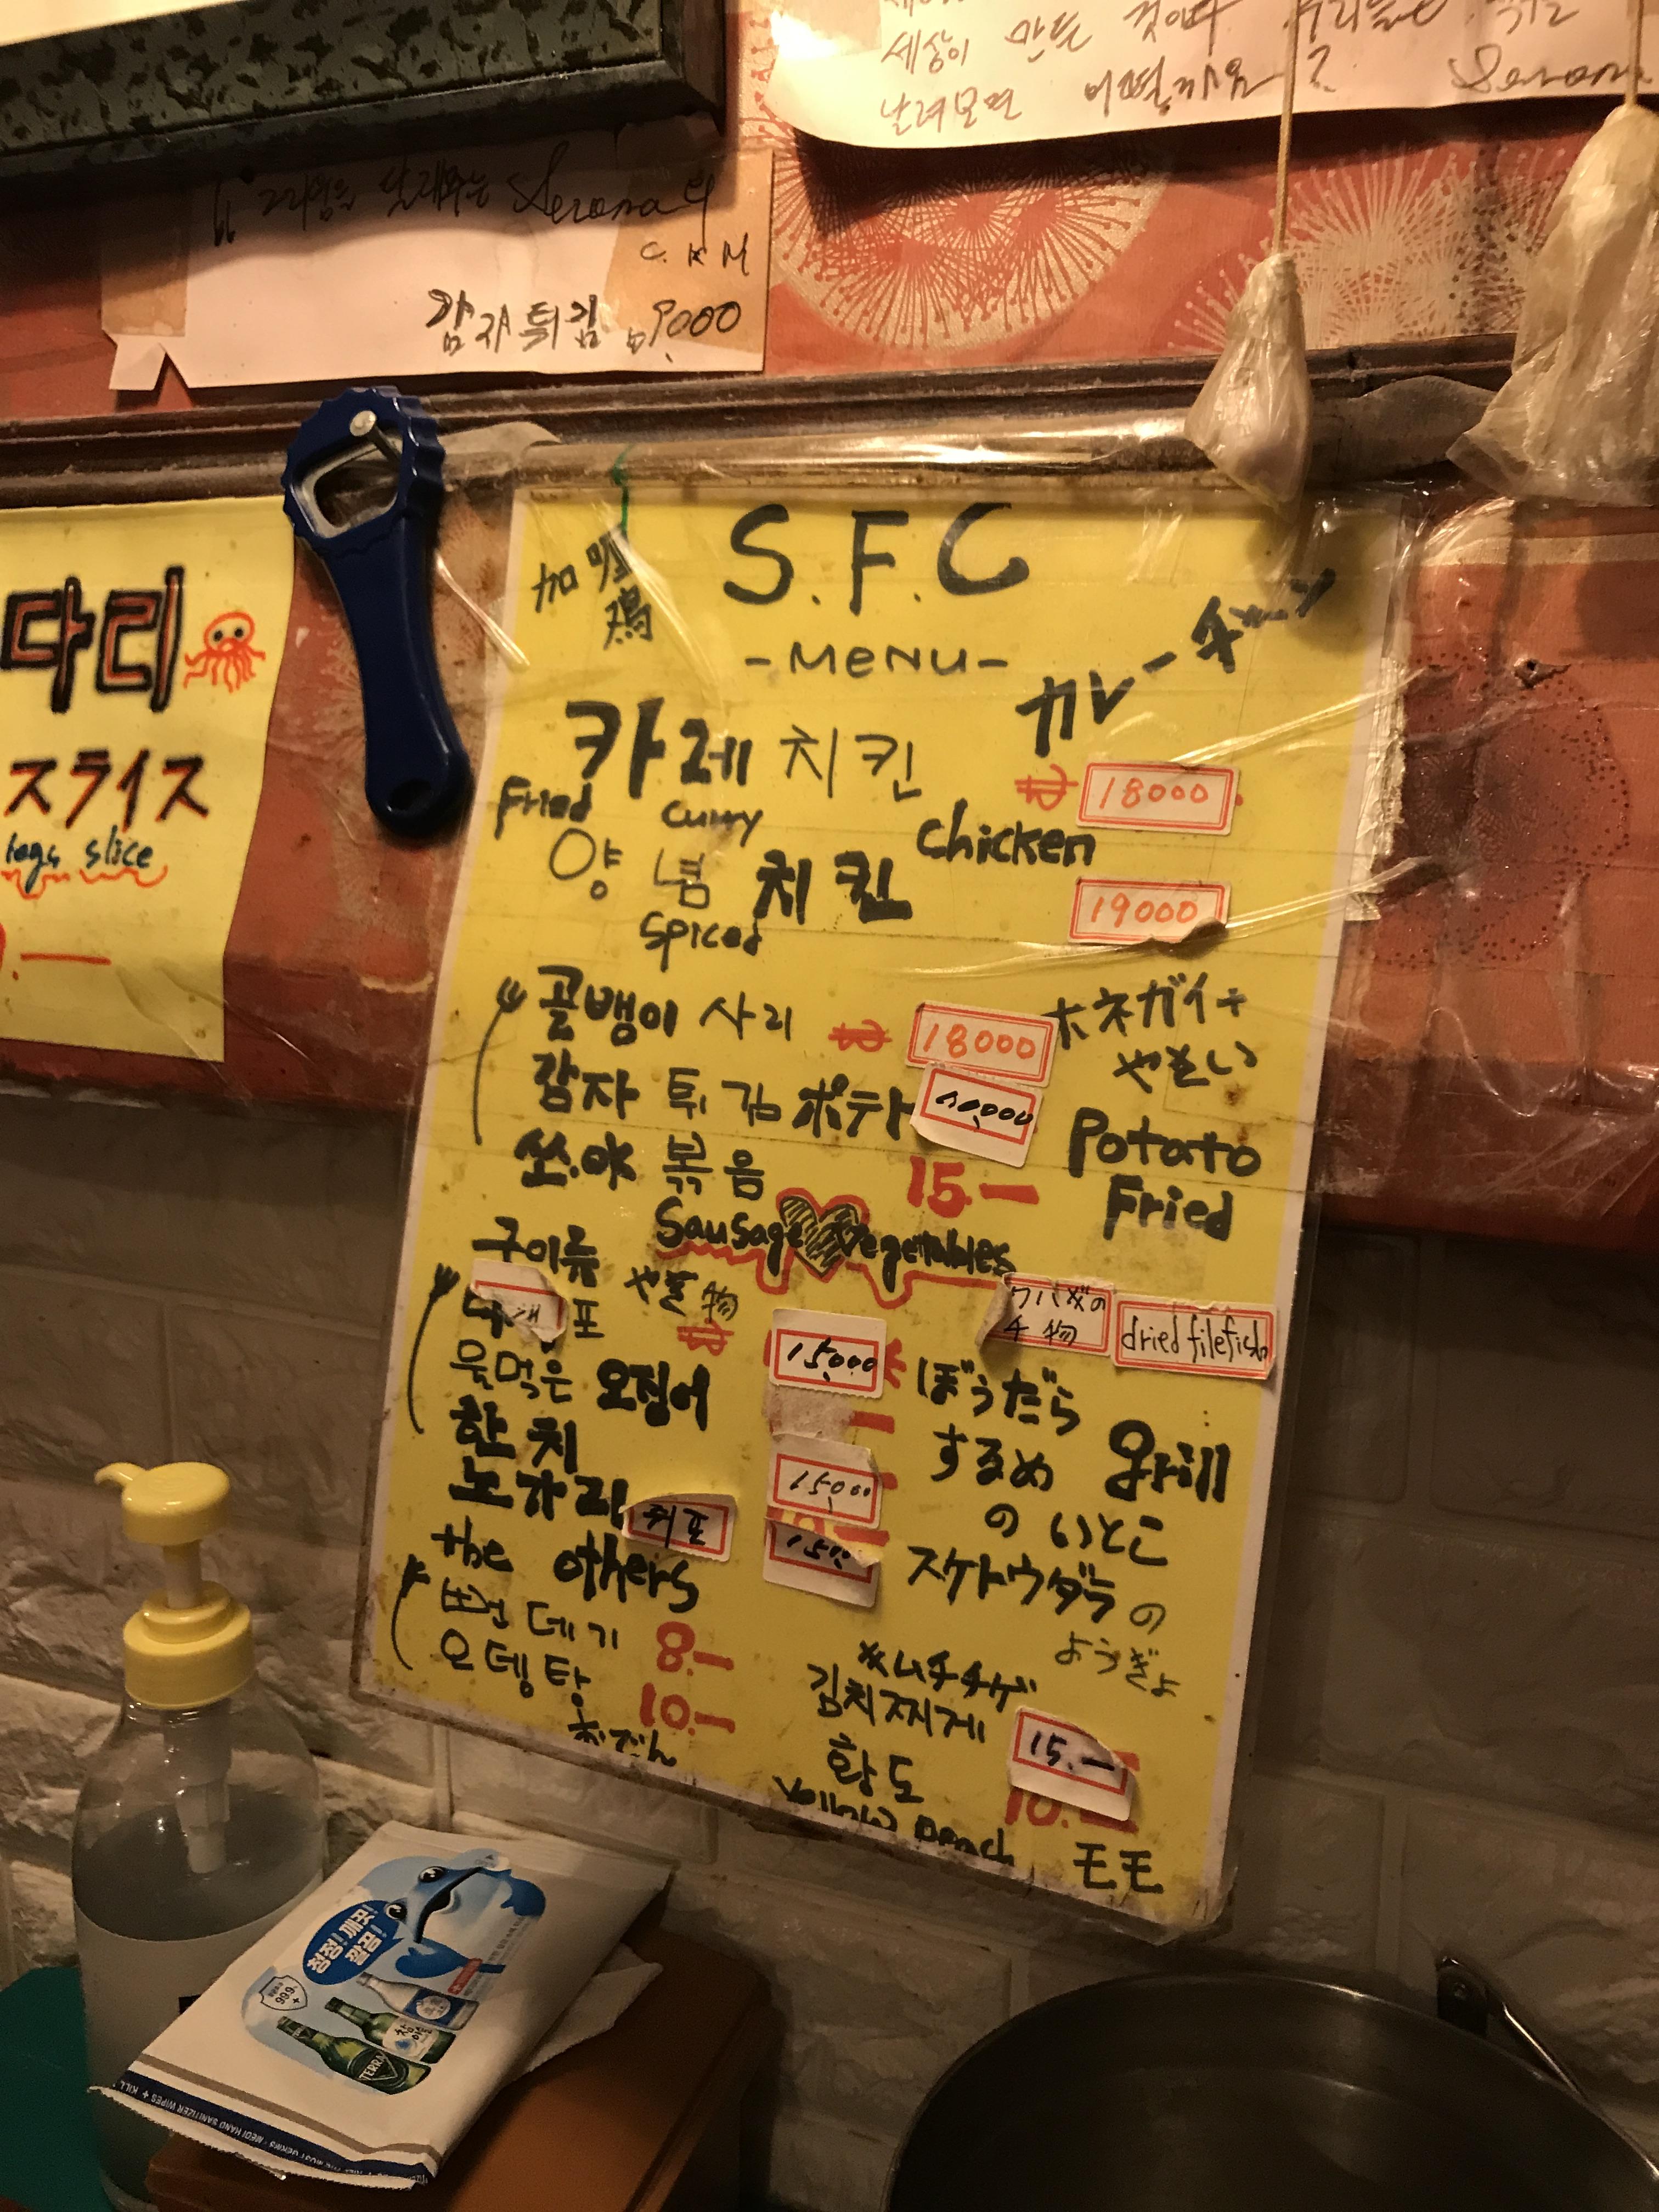 세상이 만든 것이다 우리들도
날려보면 어떨까요?
"그리움을 달래주는 Serona"
C. K M
감자튀김 9,000
다리
スライス
legs slice
S.F.C
-MENU-
加哩
鶏
カレーチキン
카레 치킨
₩ 18000.
Fried curry chicken
양념 치킨 19000
spiced
골뱅이 사리 ₩ 18000 ホネガイ
やさい
감자 튀김 ポテト
Potato Fried
쏘.야 볶음 15.—
Sausage Vegetables
구이류 やき物
포 ₩ 15,000 ぼうだら
dried filefish
물먹은 오징어 するめ
Grill
한치 15,000 のいとこ
노가리 쥐포 スケトウダラの
ようぎょ
the others
뻔데기 8.—
오뎅탕 10.—
おでん
キムチチゲ
김치찌게 15.—
황도 10.—
Yellow peach モモ
청정! 깨끗!
깔끔!
99.9%
+
참이슬
TERRA